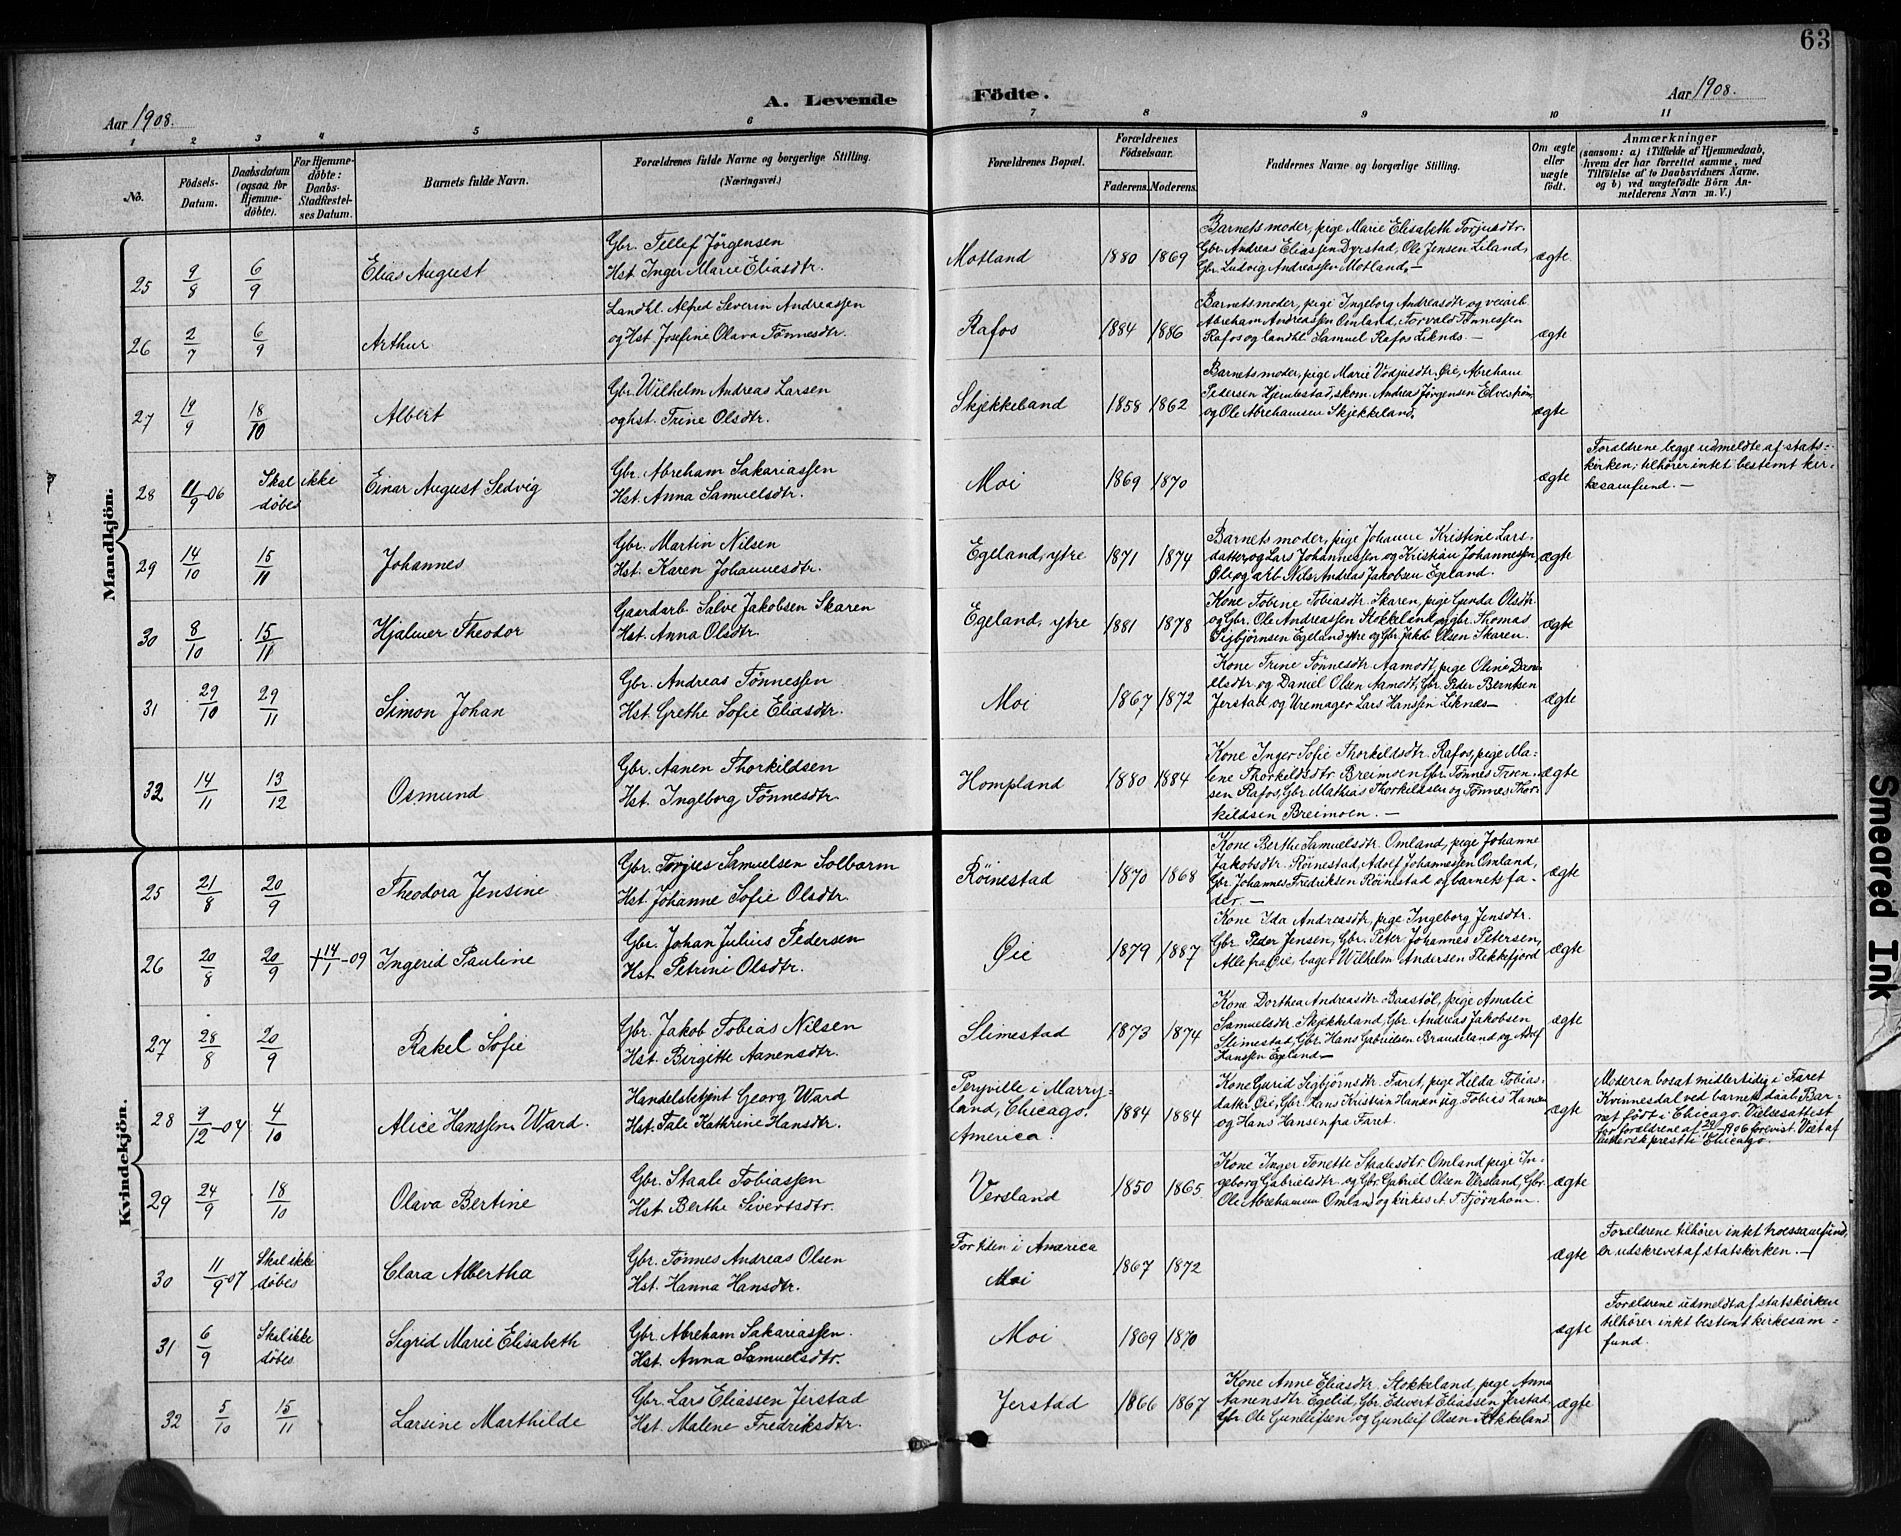 63
Aar 1908.
A. Levende Födte.
Aar 1908.
1 2 3 4 5 6 7 8 9 10 11
No.
Födsels-
Datum.
Daabsdatum
(ogsaa for
Hjemme-
döbte).
For Hjemme-
döbte:
Daabs-
Stadfæstel-
ses Datum.
Barnets fulde Navn.
Forældrenes fulde Navne og borgerlige Stilling.
(Næringsvei.)
Forældrenes Bopæl.
Forældrenes
Födselsaar.
Faderens. Moderens.
Faddernes Navne og borgerlige Stilling.
Om ægte
eller
uægte
födt.
Anmærkninger
(saasom: a) i Tilfælde af Hjemmedaab,
hvem der har forrettet samme, med
Tilföielse af to Daabsvidners Navne,
og b) ved uægtefödte Börn An-
melderens Navn m. V.)
Mandkjön.
25 9/8 6/9 Elias August
Gbr. Tellef Jörgensen
Hst. Inger Marie Eliasdtr.
Motland 1880 1869
Barnets moder, pige Marie Elisabeth Torjusdtr.
Gbr. Andreas Eliassen Dyrstad, Ole Jensen Liland,
Gbr. Ludvig Andreassen Motland. –
ægte
26 2/7 6/9 Arthur
Landhl. Alfred Severin Andreassen
og Hst. Josefine Olava Tönnesdtr.
Rafos 1884 1886
Barnets moder, pige Ingeborg Andreasdtr og veiarb.
Abreham Andreassen Omland, Torvald Tønnessen
Rafos og landhl. Samuel Rafos Liknes. –
ægte
27 19/9 18/10 Albert
Gbr. Wilhelm Andreas Larsen
og hst. Trine Olsdtr.
Skjekkeland 1858 1862
Barnets moder, pige Marie Øie, Abreham
Pedersen skom. Andreas Jörgensen
og Ole Abrehamsen Skjekkeland.
ægte
28 11/9-06 Skal ikke
døbes
Einar August Sedvig
Gbr. Abreham Sakariassen
Hst. Anna Samuelsdtr.
Moi 1869 1870
ægte
Forældrene begge udmeldte af stats-
kirken; tilhører intet bestemt kir-
kesamfund. –
29 14/10 15/11 Johannes
Gbr. Martin Nilsen
Hst. Karen Johannesdtr.
Egeland, ytre 1871 1874
Barnets moder, pige Johanne Kristine Lars-
datter, og Lars Johannessen og Kristian Johannessen
Øie og arb. Nils Andreas Jakobsen Egeland.
ægte
30 8/10 15/11 Hjalmer Theodor
Gaardarb. Salve Jakobsen Skaren
Hst. Anna Olsdtr.
Egeland, ytre 1881 1878
Kone Tobine Tobiasdtr. Skaren, pige Gunda Olsdtr.
og Gbr. Ole Andreassen Stokkeland, og gbr. Thomas
Sigbjørnsen Egeland ytre og Gbr. Jakob Olsen Skaren.
ægte
31 29/10 29/11 Simon Johan
Gbr. Andreas Tönnessen
Hst. Grethe Sofie Eliasdtr.
Moi 1867 1872
Kone Trine Tönnesdtr. Aamodt, pige Oline Dani-
elsdtr. og Daniel Olsen Aamodt, Gbr. Peder Berntsen
Jerstad og Uremager Lars Hanssen Liknes –
ægte
32 14/11 13/12 Osmund
Gbr. Aanen Thorkildsen
Hst. Ingeborg Tönnesdtr.
Hompland 1880 1884
Kone Inger Sofie Thorkildsdtr. Rafos, pige Ma-
lene Thorkildsdtr. Breimoen, Gbr. Tönnes Troen-
sen Rafos, Gbr. Mathias Thorkildsen og Tönnes Thor-
kildsen Breimoen. –
ægte
Kvindekjön.
25 21/8 20/9 Theodora Jensine
Gbr. Torjus Samuelsen Solbarm
Hst. Johanne Sofie Olsdtr.
Röinestad 1870 1868
Kone Berthe Samuelsdtr. Omland, pige Johanne
Jakobsdtr. Röinestad, Adolf Johannessen Omland,
Gbr. Johannes Fredriksen Röinestad og barnets fa-
der. –
ægte
26 20/8 20/9 +14/1-09 Ingerid Pauline
Gbr. Johan Julius Pedersen
Hst. Petrine Olsdtr.
Øie 1879 1887
Kone Ida Andreasdtr, pige Ingeborg Jensdtr.
Gbr. Peder Jensen, Gbr. Peter Johannes Petersen,
Alle fra Øie, bager Wilhelm Andersen Flekkefjord
ægte
27 28/8 20/9 Rakel Sofie
Gbr. Jakob Tobias Nilsen
Hst. Birgitte Aanensdtr.
Slimestad 1873 1874
Kone Dorthea Andreasdtr. Baastøl, pige Amalie
Samuelsdtr. Skjekkeland, Gbr. Andreas Jakobsen
Slimestad, Gbr. Hans Gabrielsen Braudeland og Adolf
Hanssen Egeland –
ægte
28 9/12-04 4/10 Alice Hanssen Ward.
Handelsbetjent Georg Ward
Hst. Tale Kathrine Hansdtr.
Peryville i Marry-
land, Chicago.
America.
1884 1884
Kone Gurid Sigbjørnsdtr. Faret, pige Hilda Tobias-
datter Øie, Gbr. Hans Kristian Hansen og Tobias Hansen
og Hans Hansen fra Faret.
ægte
Moderen bosat midlertidig i Faret
Kvinnesdal ved barnets daab. Bar-
net født i Chicago. Vielsesattest
for forældrene af 1906 forevist. Viet af
luthersk prest i Chicago.
29 24/9 18/10 Olava Bertine
Gbr. Staale Tobiassen
Hst. Berthe Sivertsdtr.
Versland 1850 1865
Kone Inger Tonette Staalesdtr. Omland, pige In-
geborg Gabrielsdtr. og Gbr. Gabriel Olsen Versland, Gbr.
Ole Abrehamsen Omland og kirkes. A. T. Tjörnhom.
ægte
30 11/9 07 Skal ikke
døbes
Clara Albertha
Gbr. Tönnes Andreas Olsen
Hst. Hanna Hansdtr.
For tiden i America
Moi
1867 1872
ægte
Forældrene tilhører intet troessamfund,
er udskrevet af statskirken. –
31 6/9 Skal ikke
døbes
Sigrid Marie Elisabeth
Gbr. Abreham Sakariassen.
Hst. Anna Samuelsdtr.
Moi 1869 1870
ægte
Forældrene udmeldt af statskirken
tilhører intet bestemt kirkesam-
fund.
32 5/10 15/11 Larsine Marthilde
Gbr. Lars Eliassen Jerstad
Hst. Malene Fredriksdtr.
Jerstad 1866 1867
Kone Anne Eliasdtr. Stokkeland, pige Anna
Aanensdtr. Egelid, Gbr. Edvert Eliassen Jerstad,
Gbr. Ole Gunleifsen og Gunleif Olsen Stokkeland
ægte
Smeared Ink